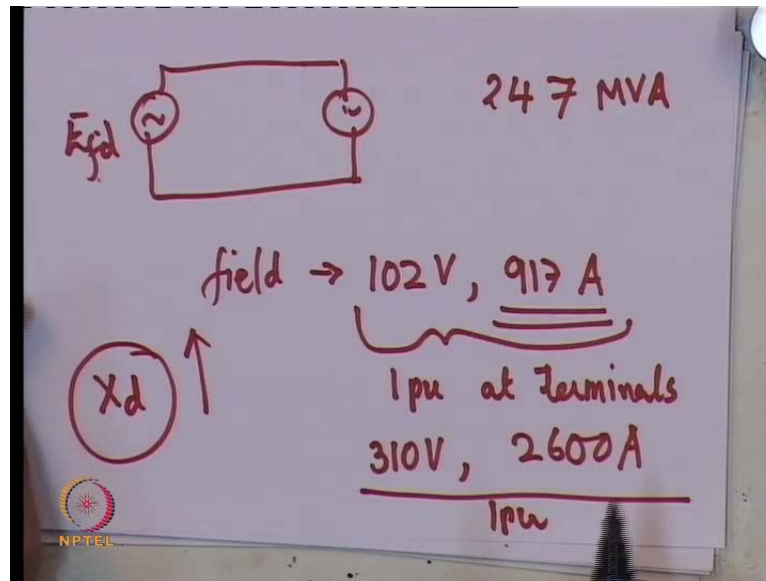 247 MVA
Efd
field → 102 V, 917 A
1pu at terminals
Xd ↑
310V, 2600A
1pu
NPTEL